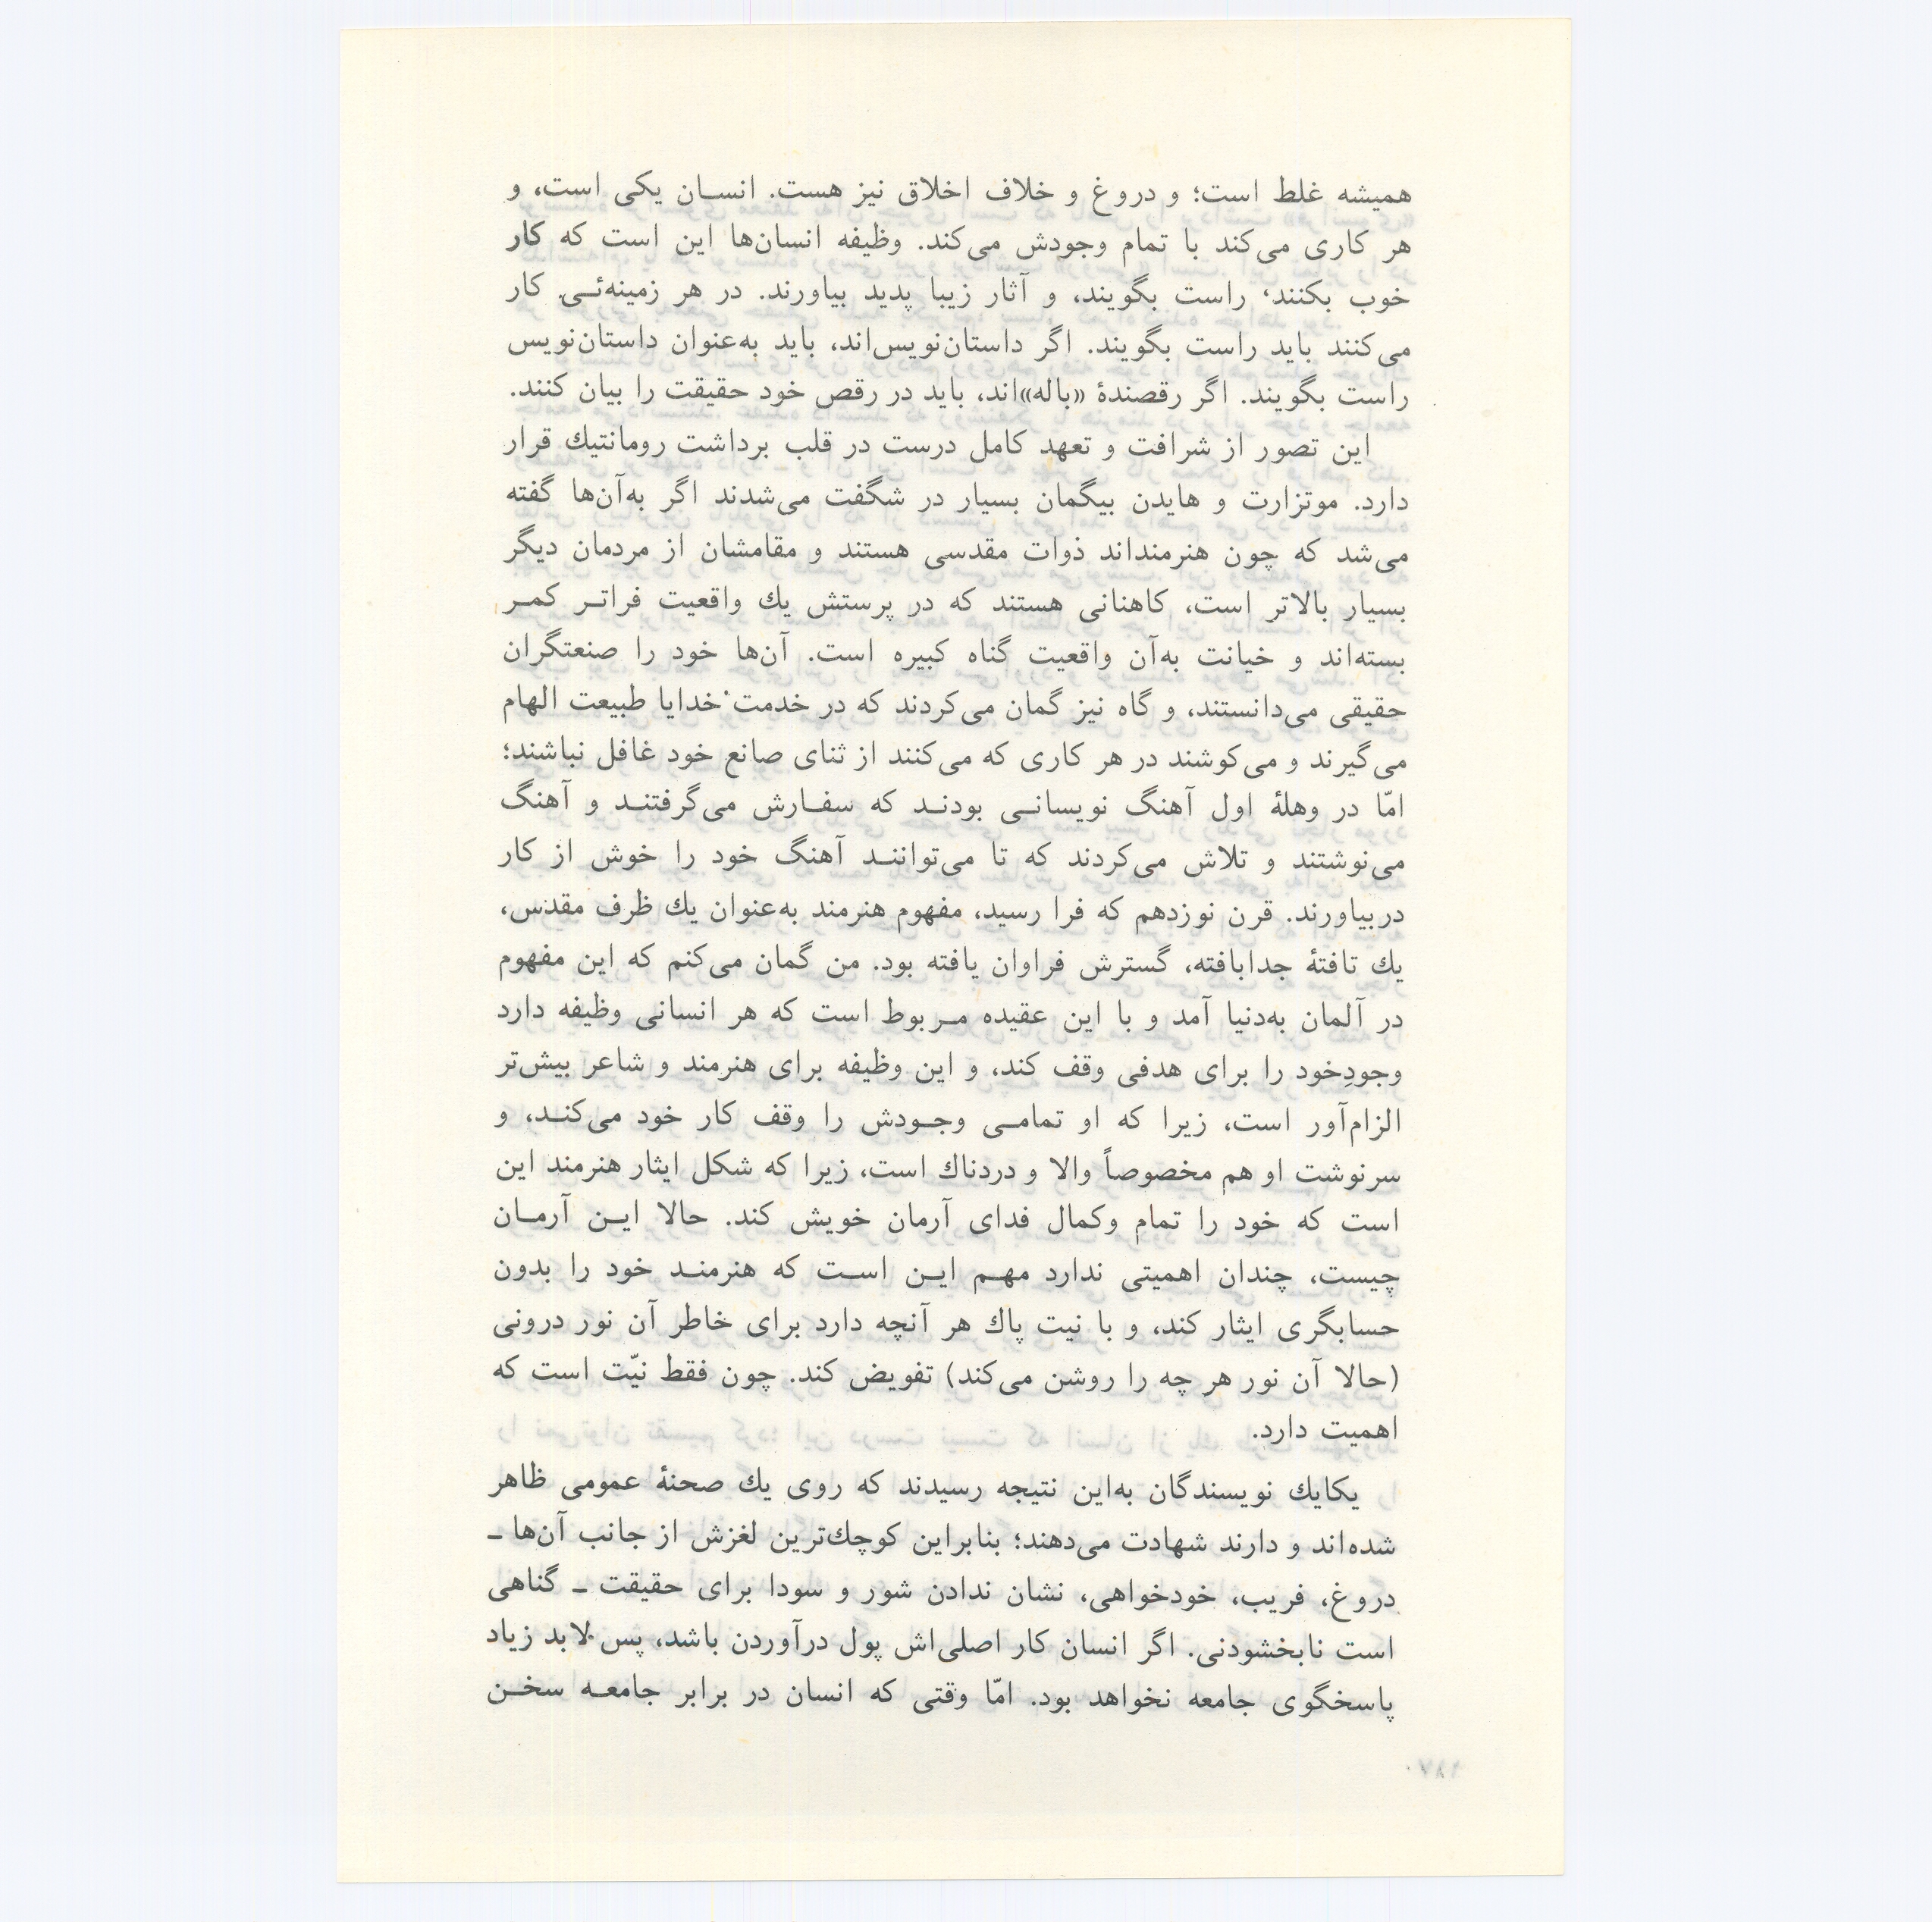 همیشه غلط است؛ و دروغ و خلاف اخلاق نیز هست. انسان یکی است، و
هر کاری می‌کند با تمام وجودش می‌کند. وظیفه انسان‌ها این است که کار
خوب بکنند، راست بگویند، و آثار زیبا پدید بیاورند. در هر زمینه‌ئی کار
می‌کنند باید راست بگویند. اگر داستان‌نویس‌اند، باید به‌عنوان داستان‌نویس
راست بگویند. اگر رقصندهٔ «باله»اند، باید در رقص خود حقیقت را بیان کنند.
این تصور از شرافت و تعهد کامل درست در قلب برداشت رومانتیك قرار
دارد. موتزارت و هایدن بیگمان بسیار در شگفت می‌شدند اگر به‌آن‌ها گفته
می‌شد که چون هنرمنداند ذوات مقدسی هستند و مقامشان از مردمان دیگر
بسیار بالاتر است، کاهنانی هستند که در پرستش یك واقعیت فراتر کمر
بسته‌اند و خیانت به‌آن واقعیت گناه کبیره است. آن‌ها خود را صنعتگران
حقیقی می‌دانستند، و گاه نیز گمان می‌کردند که در خدمت خدایا طبیعت الهام
می‌گیرند و می‌کوشند در هر کاری که می‌کنند از ثنای صانع خود غافل نباشند؛
امّا در وهلهٔ اول آهنگ نویسانی بودند که سفارش می‌گرفتند و آهنگ
می‌نوشتند و تلاش می‌کردند که تا می‌توانند آهنگ خود را خوش از کار
دربیاورند. قرن نوزدهم که فرا رسید، مفهوم هنرمند به‌عنوان یك ظرف مقدس،
یك تافتهٔ جدابافته، گسترش فراوان یافته بود. من گمان می‌کنم که این مفهوم
در آلمان به‌دنیا آمد و با این عقیده مربوط است که هر انسانی وظیفه دارد
وجودِخود را برای هدفی وقف کند، و این وظیفه برای هنرمند و شاعر بیش‌تر
الزام‌آور است، زیرا که او تمامی وجودش را وقف کار خود می‌کند، و
سرنوشت او هم مخصوصاً والا و دردناك است، زیرا که شکل ایثار هنرمند این
است که خود را تمام وکمال فدای آرمان خویش کند. حالا این آرمان
چیست، چندان اهمیتی ندارد مهم این است که هنرمند خود را بدون
حسابگری ایثار کند، و با نیت پاك هر آنچه دارد برای خاطر آن نور درونی
(حالا آن نور هر چه را روشن می‌کند) تفویض کند. چون فقط نیّت است که
اهمیت دارد.
یکایك نویسندگان به‌این نتیجه رسیدند که روی یك صحنهٔ عمومی ظاهر
شده‌اند و دارند شهادت می‌دهند؛ بنابراین کوچك‌ترین لغزش از جانب آن‌ها ـ
دروغ، فریب، خودخواهی، نشان ندادن شور و سودا برای حقیقت ـ گناهی
است نابخشودنی. اگر انسان کار اصلی‌اش پول درآوردن باشد، پس لابد زیاد
پاسخگوی جامعه نخواهد بود. امّا وقتی که انسان در برابر جامعه سخن